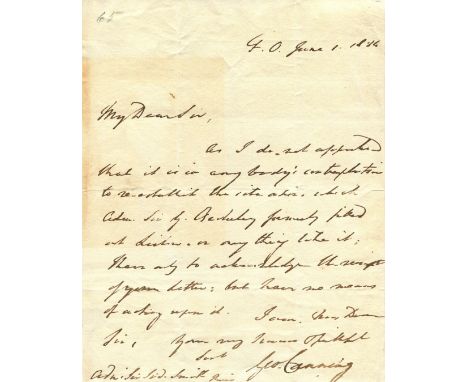 65
F. O. June 1. 18
My Dear Sir,
As I do not apprehend
that it is in any body's contemplation
to re-establish the situation, which
Adm. Sir G. Berkeley formerly filled
at Lisbon, or any thing like it;
I have only to acknowledge the receipt
of your letter; but have no means
of acting upon it.
I am, My Dear
Sir,
Your very
Servt
Geo. Canning
Adm. Sir Sid. Smith